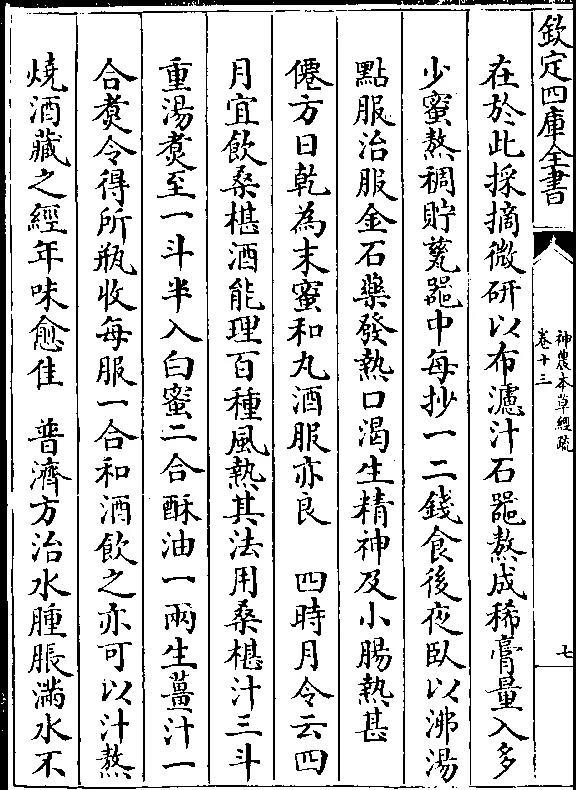 欽定四庫全書
神農本草經疏
卷十三
七
在於此採摘微研以布濾汁石器熬成稀膏量入多
少蜜熬稠貯甆器中每抄一二錢食後夜臥以沸湯
點服治服金石藥發熱口渴生精神及小腸熱甚
僊方曰乾為末蜜和丸酒服亦良 四時月令云四
月宜飲桑椹酒能理百種風熱其法用桑椹汁三斗
重湯煑至一斗半入白蜜二合酥油一兩生薑汁一
合煑令得所瓶收每服一合和酒飲之亦可以汁熬
燒酒藏之經年味愈佳 普濟方治水腫脹滿水不